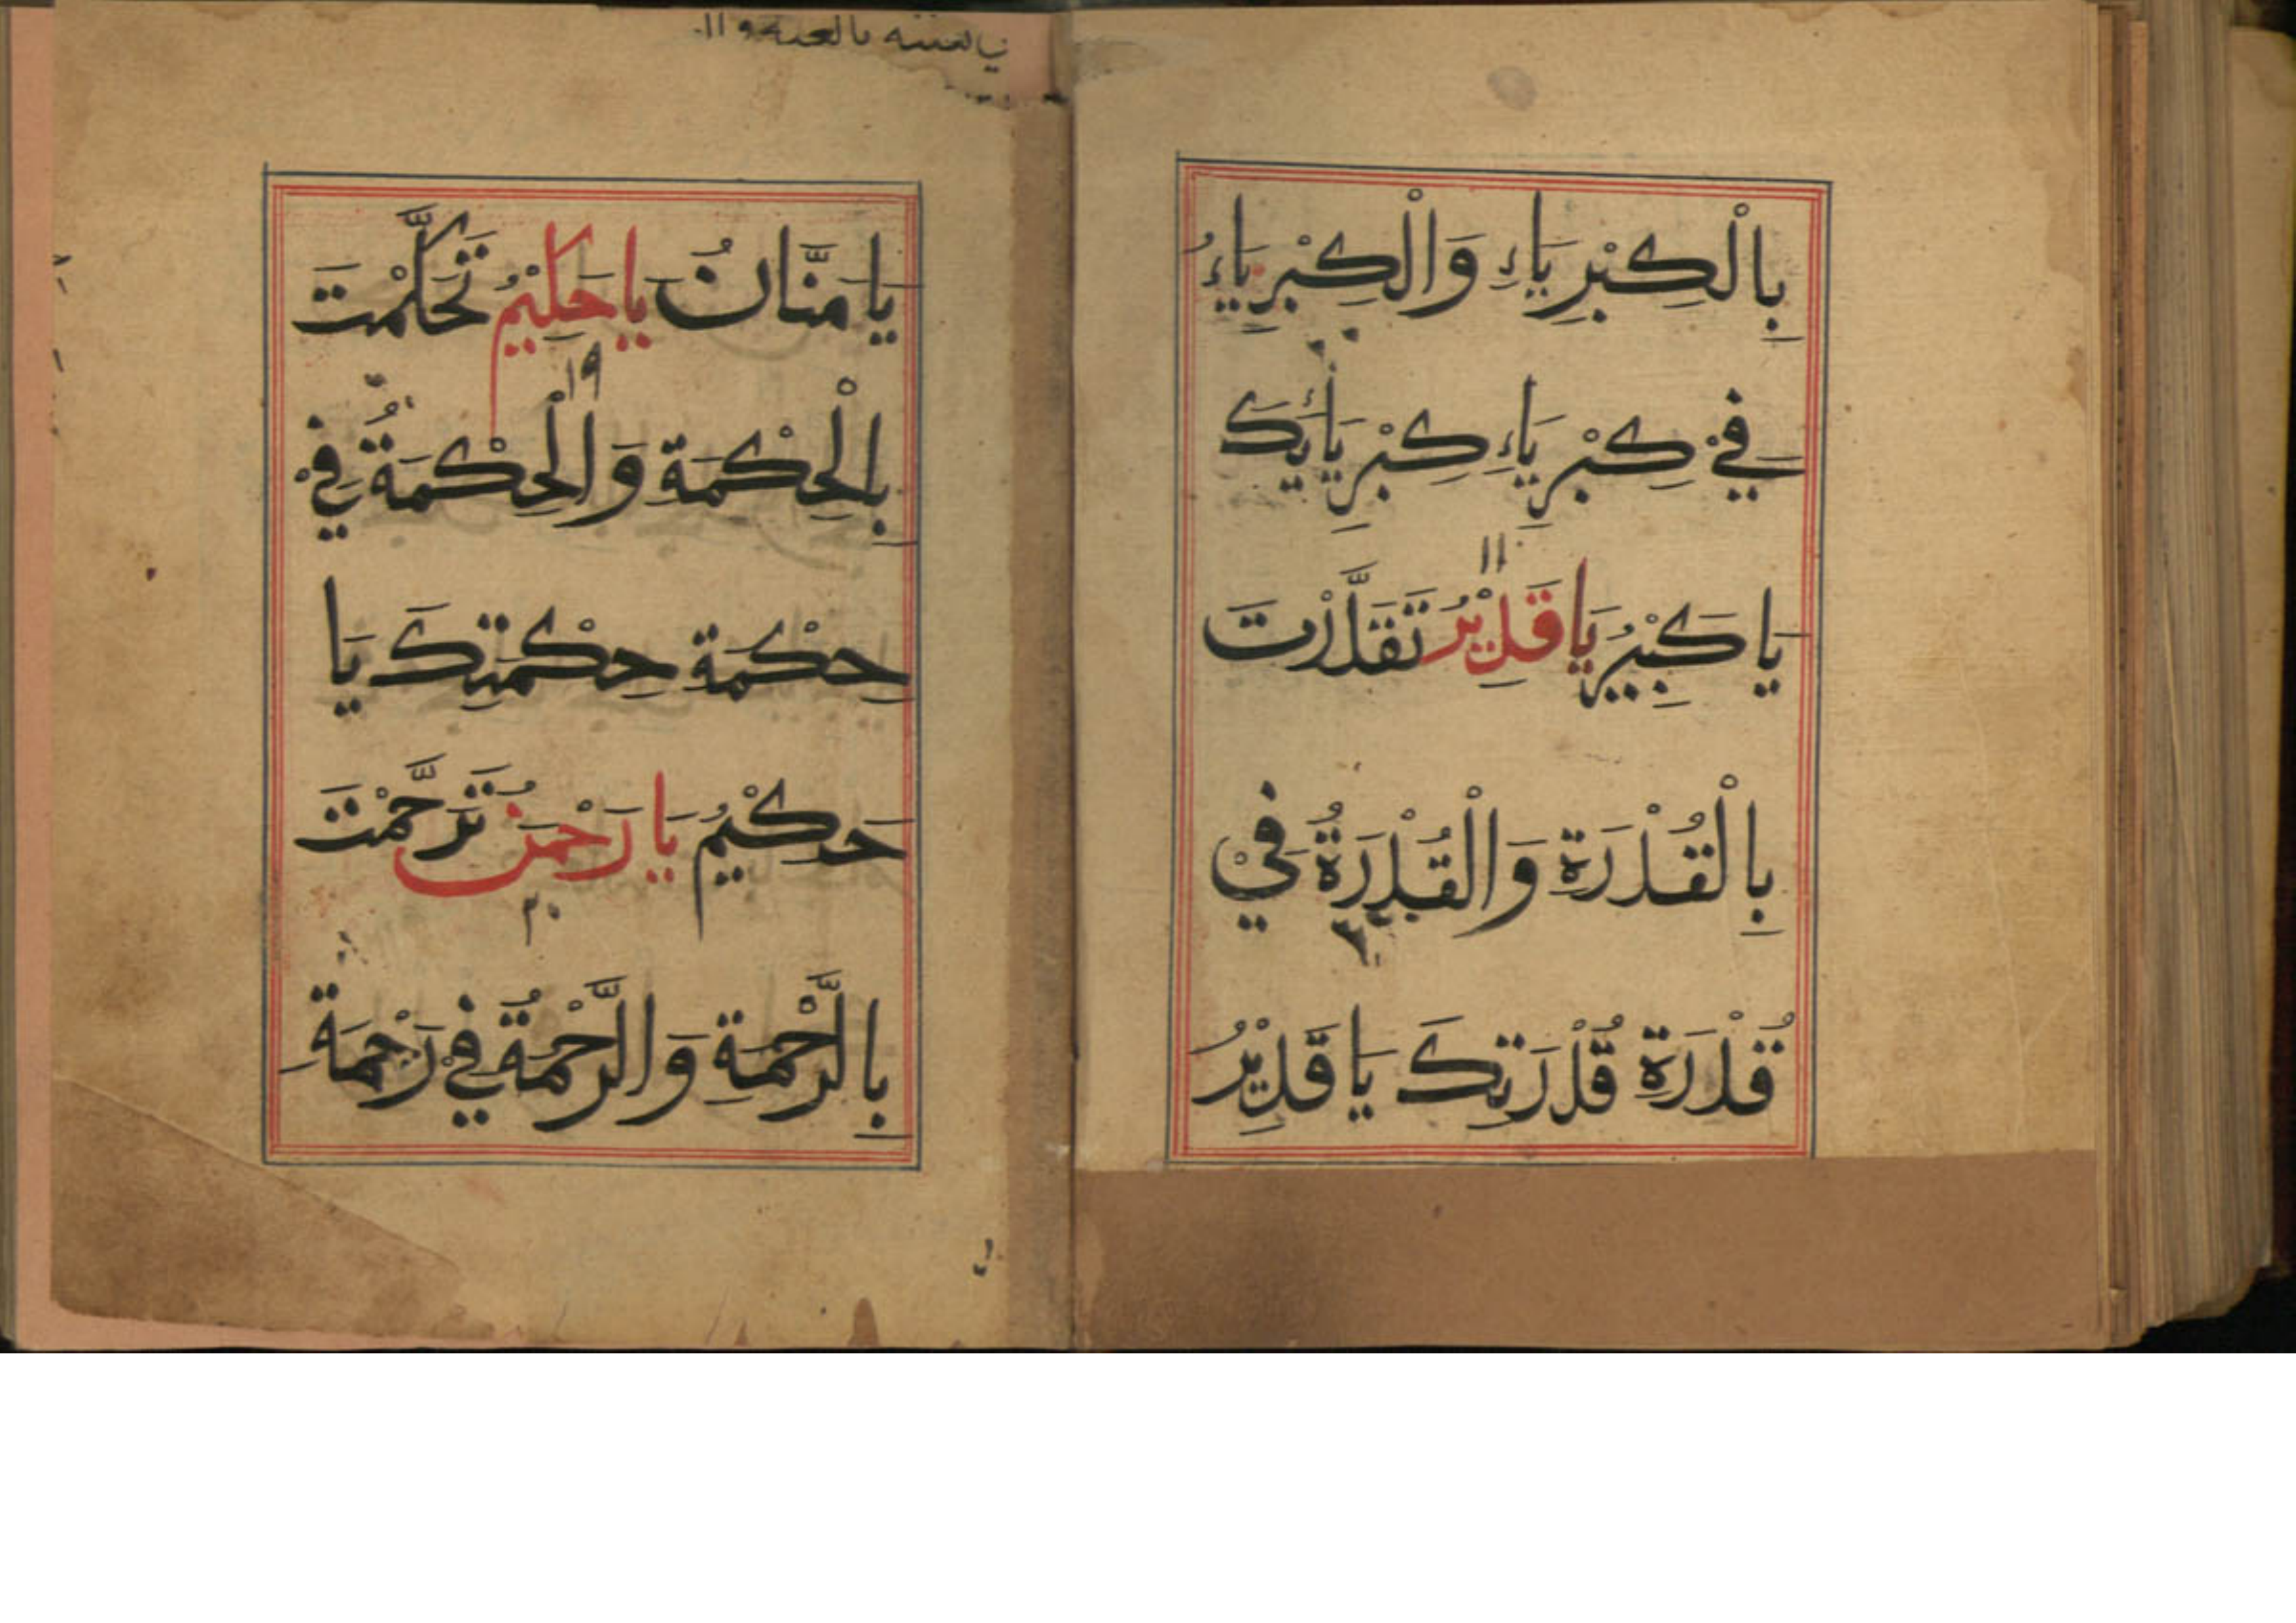 بِالْكِبْرِيَاءِ وَالْكِبْرِيَاءُ
فِيْ كِبْرِيَاءِ كِبْرِيَائِكَ
١١
يَا كَبِيْرُ يَا قَدِيْرُ تَقَدَّرْتَ
بِالْقُدْرَةِ وَالْقُدْرَةُ فِيْ
قُدْرَةِ قُدْرَتِكَ يَا قَدِيْرُ
يَا مَنَّانُ يَا حَكِيْمُ تَحَكَّمْتَ
١٩
بِالْحِكْمَةِ وَالْحِكْمَةُ فِيْ
حِكْمَةِ حِكْمَتِكَ يَا
حَكِيْمُ يَا رَحْمٰنُ تَرَحَّمْتَ
٢٠
بِالرَّحْمَةِ وَالرَّحْمَةُ فِيْ رَحْمَةِ